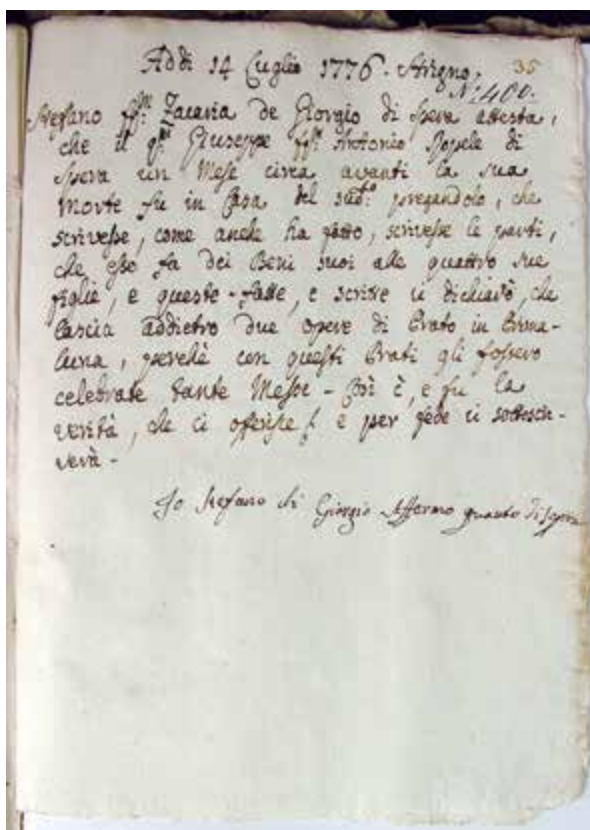 Addì 14 Luglio 1776. Strigno.
35
N.º 400.
Stefano qq.m Zacaria de Giorgio di Spera attesta,
che il q.m Giuseppe qq.m Antonio Ropele di
Spera un Mese circa avanti la sua
Morte fu in Casa del sud.º pregandolo, che
scrivesse, come anche ha fatto, scrivesse le parti,
che esso fa dei Beni suoi alle quattro sue
figlie, e queste fatte, e scritte ci dichiarò, che
lascia addietro due opere di Prato in
perchè con questi Prati gli fossero
celebrate tante Messe - Così è, e fu la
verità, che ci offerisse e per fede si sottoscri-
verà -
Io Stefano di Giorgio Affermo quanto di sopra